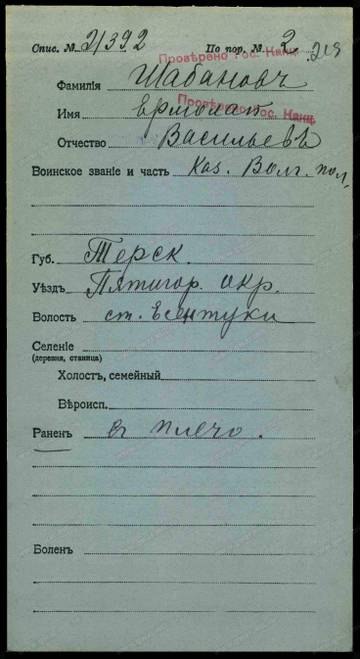 Спис. № 21392 По пор. № 2 218
Провѣрено Гос. Канц.
Фамилія Шабановъ
Провѣрено Гос. Канц.
Имя Ермолай
Отчество Васильевъ
Воинское званіе и часть Каз. Волг. пол.
Губ. Терск.
Уѣздъ Пятигор. окр.
Волость ст. Есентуки
Селеніе
(деревня, станица)
Холостъ, семейный
Вѣроисп.
Раненъ въ плечо.
Боленъ